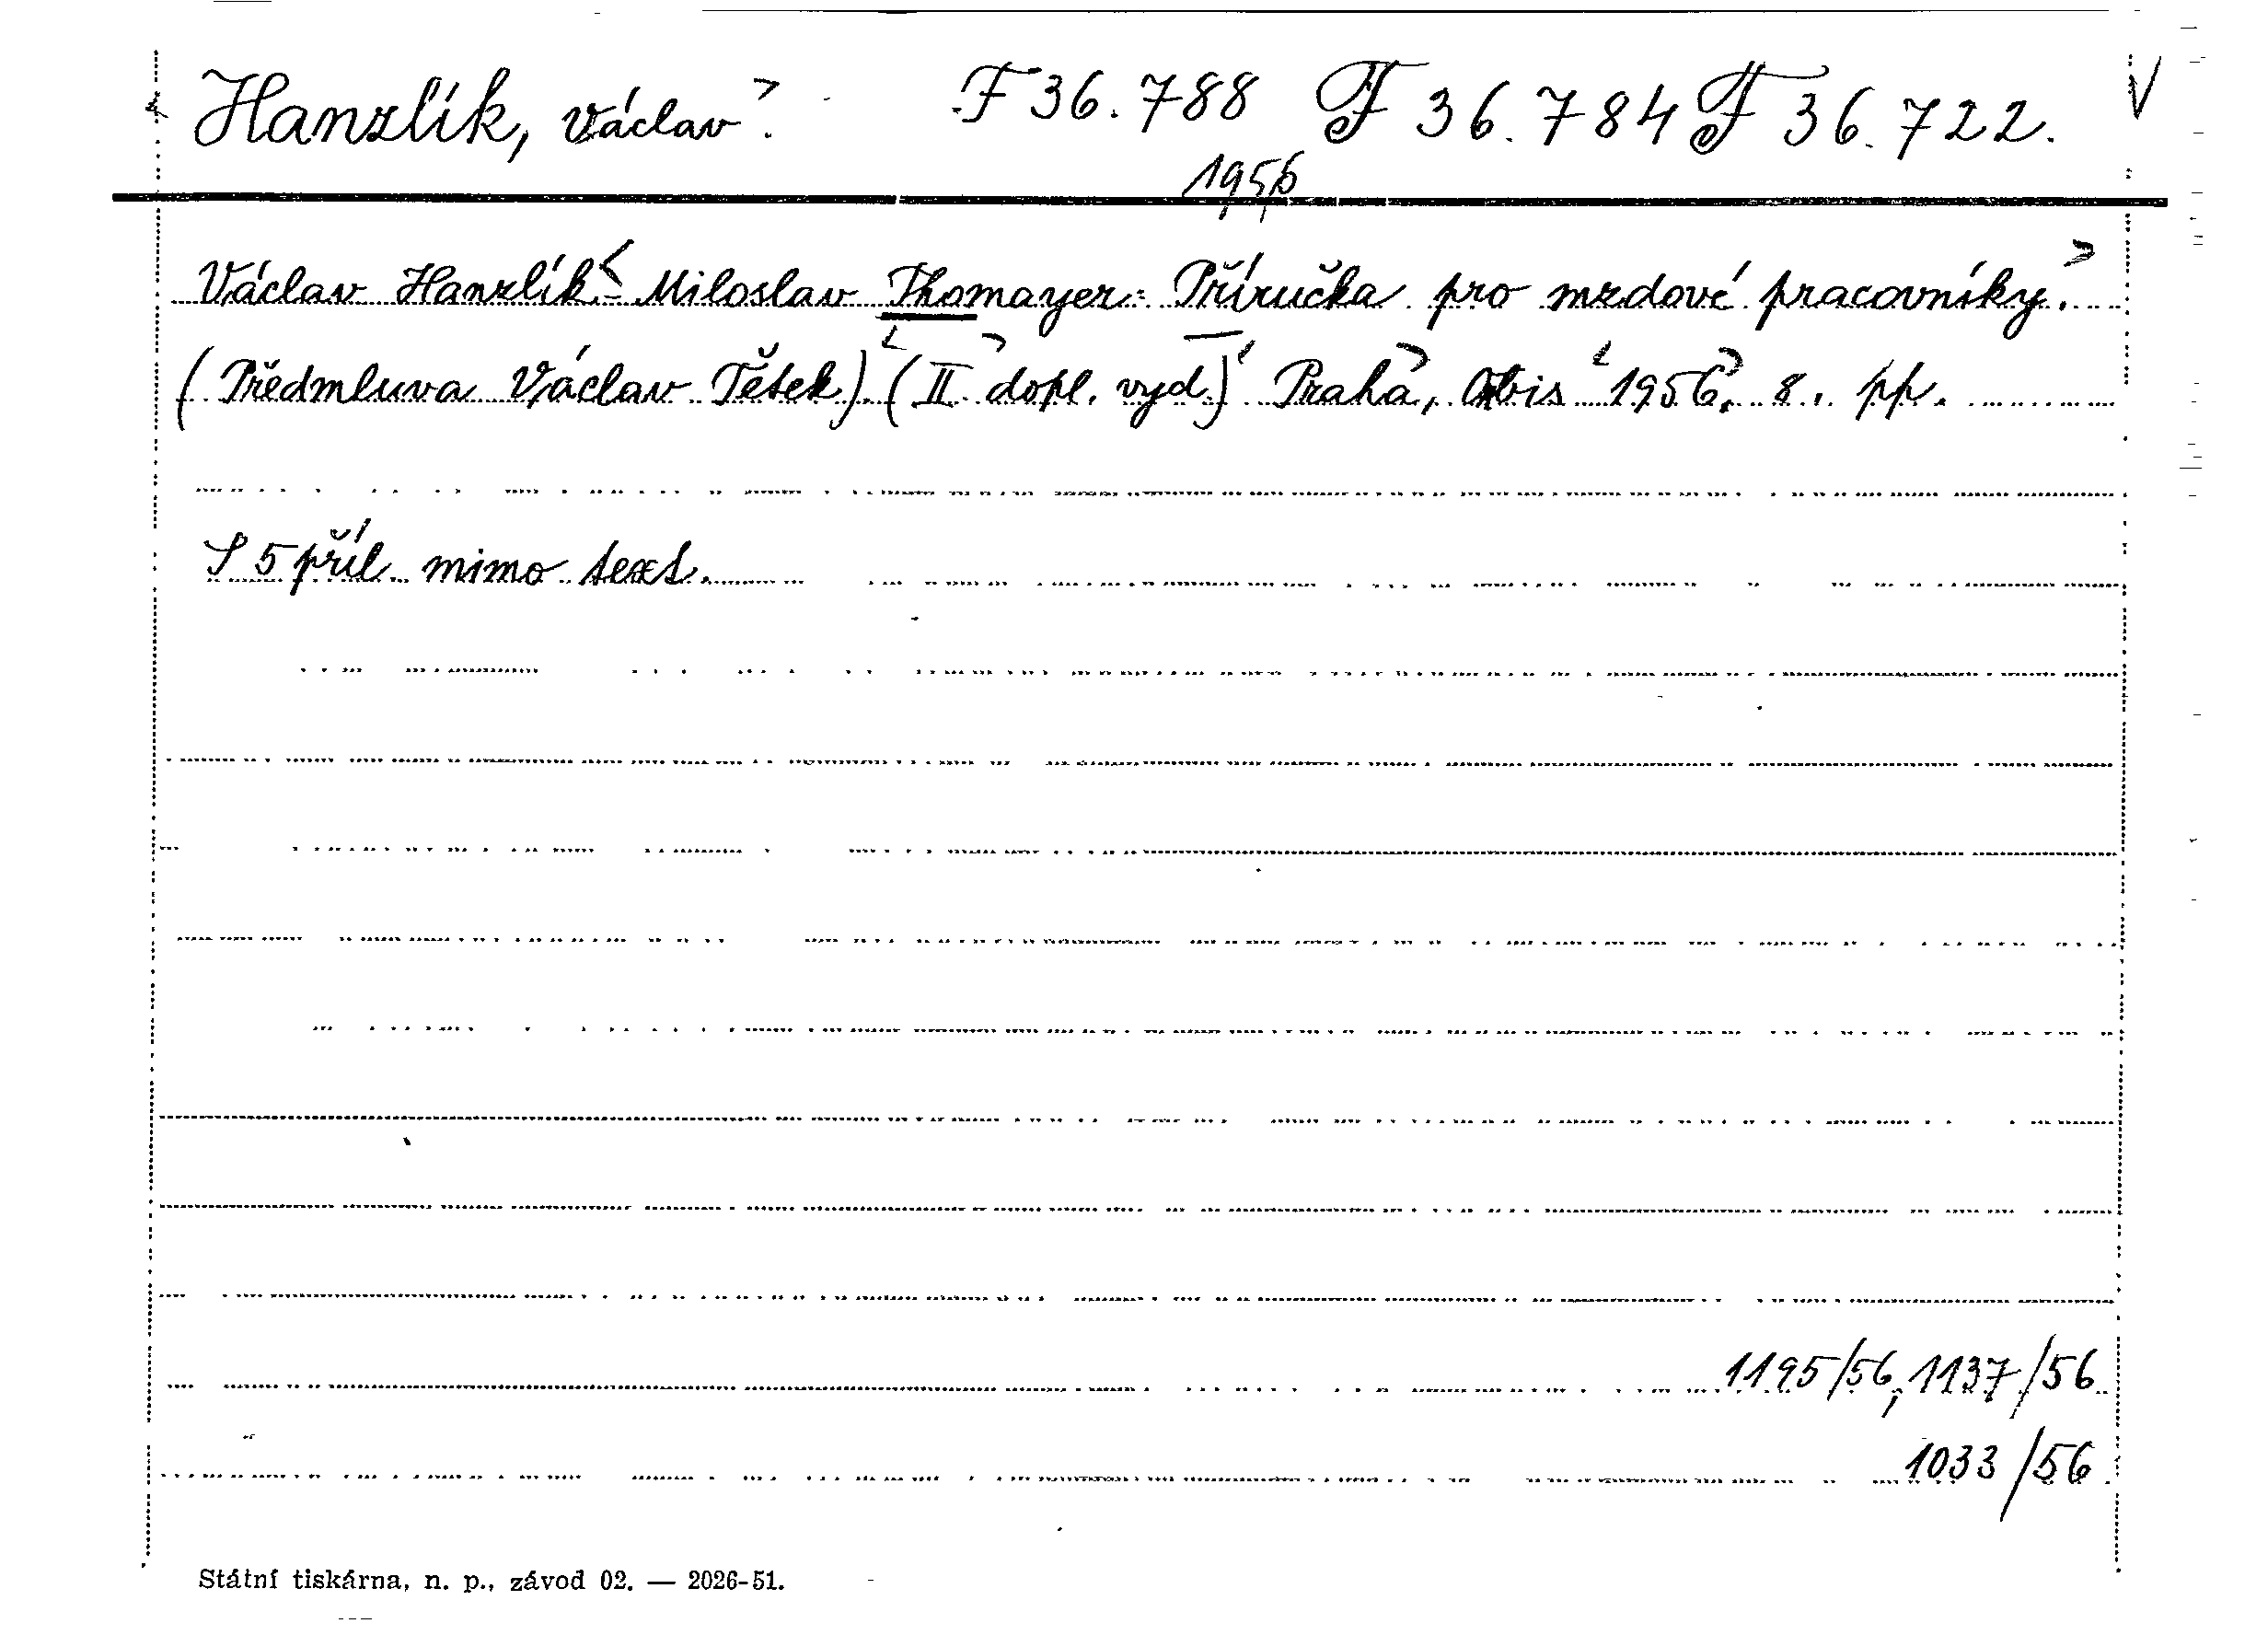 Hanzlík, Václav. F 36.788 F 36.784 F 36.722.
1956
Václav Hanzlík - Miloslav Thomayer: Příručka pro mzdové pracovníky.
(Předmluva Václav Těšek). (II. dopl. vyd.) Praha, Orbis 1956. 8°. pp.
S 5 příl. mimo text.
1195/56, 1137/56
1033/56
Státní tiskárna, n. p., závod 02. — 2026-51.